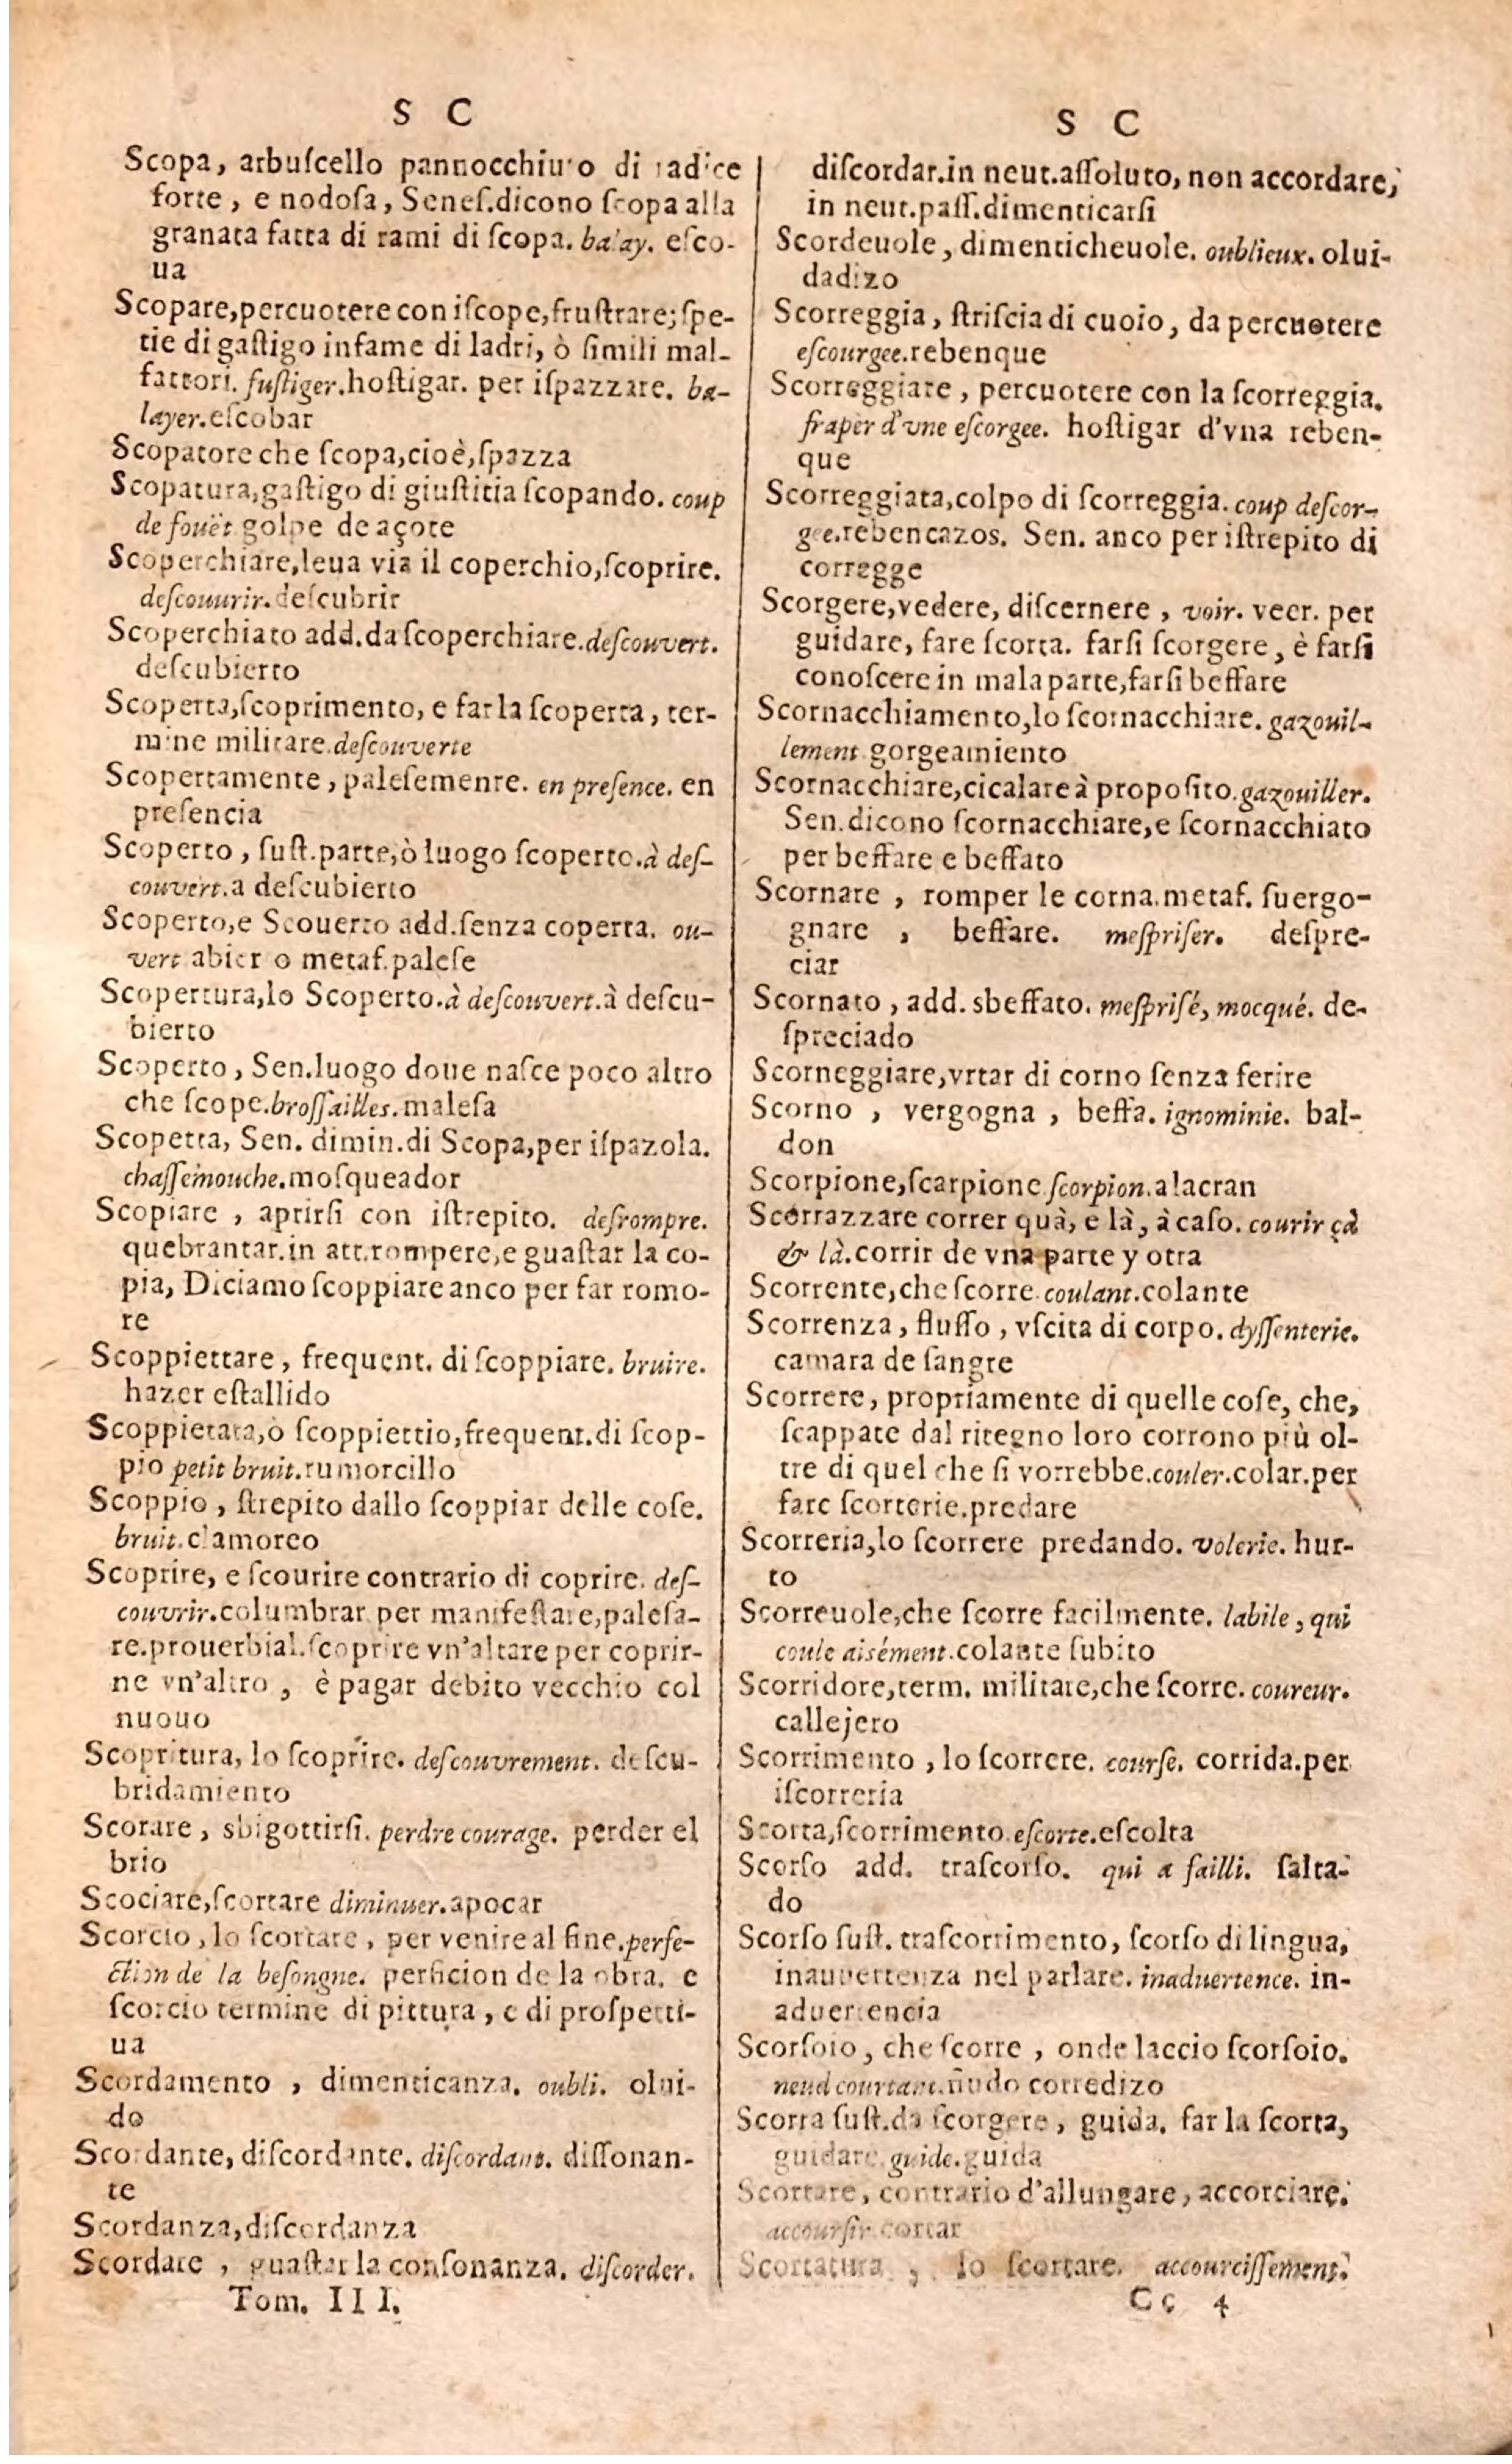 S C
Scopa, arbuſcello pannocchiuto di radice
forte, e nodoſa, Seneſ.dicono ſcopa alla
granata fatta di rami di ſcopa. balay. eſco-
ua
Scopare,percuotere con iſcope,fruſtrare; ſpe-
tie di gaſtigo infame di ladri, ò ſimili mal-
fattori. fuſtiger.hoſtigar. per iſpazzare. ba-
layer.eſcobar
Scopatore che ſcopa,cioè,ſpazza
Scopatura,gaſtigo di giuſtitia ſcopando. coup
de fouët golpe de açote
Scoperchiare,leua via il coperchio,ſcoprire.
deſcouurir.deſcubrir
Scoperchiato add.da ſcoperchiare.deſcouvert.
deſcubierto
Scoperta,ſcoprimento, e far la ſcoperta, ter-
mine militare.deſcouverte
Scopertamente, paleſemente. en preſence. en
preſencia
Scoperto, ſuſt.parte,ò luogo ſcoperto.à deſ-
couvert.a deſcubierto
Scoperto,e Scouerto add.ſenza coperta. ou-
vert abier o metaf.paleſe
Scopertura,lo Scoperto.à deſcouvert.à deſcu-
bierto
Scoperto, Sen.luogo doue naſce poco altro
che ſcope.broſſailles.maleſa
Scopetta, Sen. dimin.di Scopa,per iſpazola.
chaſſemouche.moſqueador
Scopiare, aprirſi con iſtrepito. deſrompre.
quebrantar.in att.rompere,e guaſtar la co-
pia, Diciamo ſcoppiare anco per far romo-
re
Scoppiettare, frequent. di ſcoppiare. bruire.
hazer eſtallido
Scoppietata,ò ſcoppiettio,frequent.di ſcop-
pio petit bruit.rumorcillo
Scoppio, ſtrepito dallo ſcoppiar delle coſe.
bruit.clamoreo
Scoprire, e ſcourire contrario di coprire. deſ-
couvrir.columbrar per manifeſtare,paleſa-
re.prouerbial.ſcoprire vn'altare per coprir-
ne vn'altro, è pagar debito vecchio col
nuouo
Scopritura, lo ſcoprire. deſcouvrement. deſcu-
bridamiento
Scorare, sbigottirſi. perdre courage. perder el
brio
Scociare,ſcortare diminuer.apocar
Scorcio, lo ſcortare, per venire al fine.perfe-
ction de la beſongne. perficion de la obra. e
ſcorcio termine di pittura, e di proſpetti-
ua
Scordamento, dimenticanza. oubli. olui-
do
Scordante, diſcordante. diſcordant. diſſonan-
te
Scordanza,diſcordanza
Scordare, guaſtar la conſonanza. diſcorder.
Tom. III.
S C
diſcordar.in neut.aſſoluto, non accordare,
in neut.paſſ.dimenticarſi
Scordeuole, dimenticheuole. oublieux. olui-
dadizo
Scorreggia, ſtriſcia di cuoio, da percuotere
eſcourgee.rebenque
Scorreggiare, percuotere con la ſcorreggia.
fraper d'vne eſcorgee. hoſtigar d'vna reben-
que
Scorreggiata,colpo di ſcorreggia. coup deſcor-
gee.rebencazos. Sen. anco per iſtrepito di
corregge
Scorgere,vedere, diſcernere, voir. veer. per
guidare, fare ſcorta. farſi ſcorgere, è farſi
conoſcere in mala parte,farſi beffare
Scornacchiamento,lo ſcornacchiare. gazouil-
lement gorgeamiento
Scornacchiare,cicalare à propoſito.gazouiller.
Sen.dicono ſcornacchiare,e ſcornacchiato
per beffare e beffato
Scornare, romper le corna.metaf. ſuergo-
gnare, beffare. meſpriſer. deſpre-
ciar
Scornato, add. sbeffato. meſpriſé, mocqué. de-
ſpreciado
Scorneggiare,vrtar di corno ſenza ferire
Scorno, vergogna, beffa. ignominie. bal-
don
Scorpione,ſcarpione ſcorpion.alacran
Scorrazzare correr quà, e là, à caſo. courir çà
& là.corrir de vna parte y otra
Scorrente,che ſcorre coulant.colante
Scorrenza, fluſſo, vſcita di corpo. dyſſenterie.
camara de ſangre
Scorrere, propriamente di quelle coſe, che,
ſcappate dal ritegno loro corrono più ol-
tre di quel che ſi vorrebbe.couler.colar.per
fare ſcorrerie.predare
Scorreria,lo ſcorrere predando. volerie. hur-
to
Scorreuole,che ſcorre facilmente. labile, qui
coule aisément.colante ſubito
Scorridore,term. militare,che ſcorre. coureur.
callejero
Scorrimento, lo ſcorrere. courſe. corrida.per
iſcorreria
Scorta,ſcorrimento.eſcorte.eſcolta
Scorſo add. traſcorſo. qui a failli. ſalta-
do
Scorſo ſuſt. traſcorrimento, ſcorſo di lingua,
inauuertenza nel parlare. inaduertence. in-
aduertencia
Scorſoio, che ſcorre, onde laccio ſcorſoio.
neud courtant.ñudo corredizo
Scorta ſuſt.da ſcorgere, guida. far la ſcorta,
guidare.guide.guida
Scortare, contrario d'allungare, accorciare.
accourſir.cortar
Scortatura, lo ſcortare. accourciſſement.
Cc 4